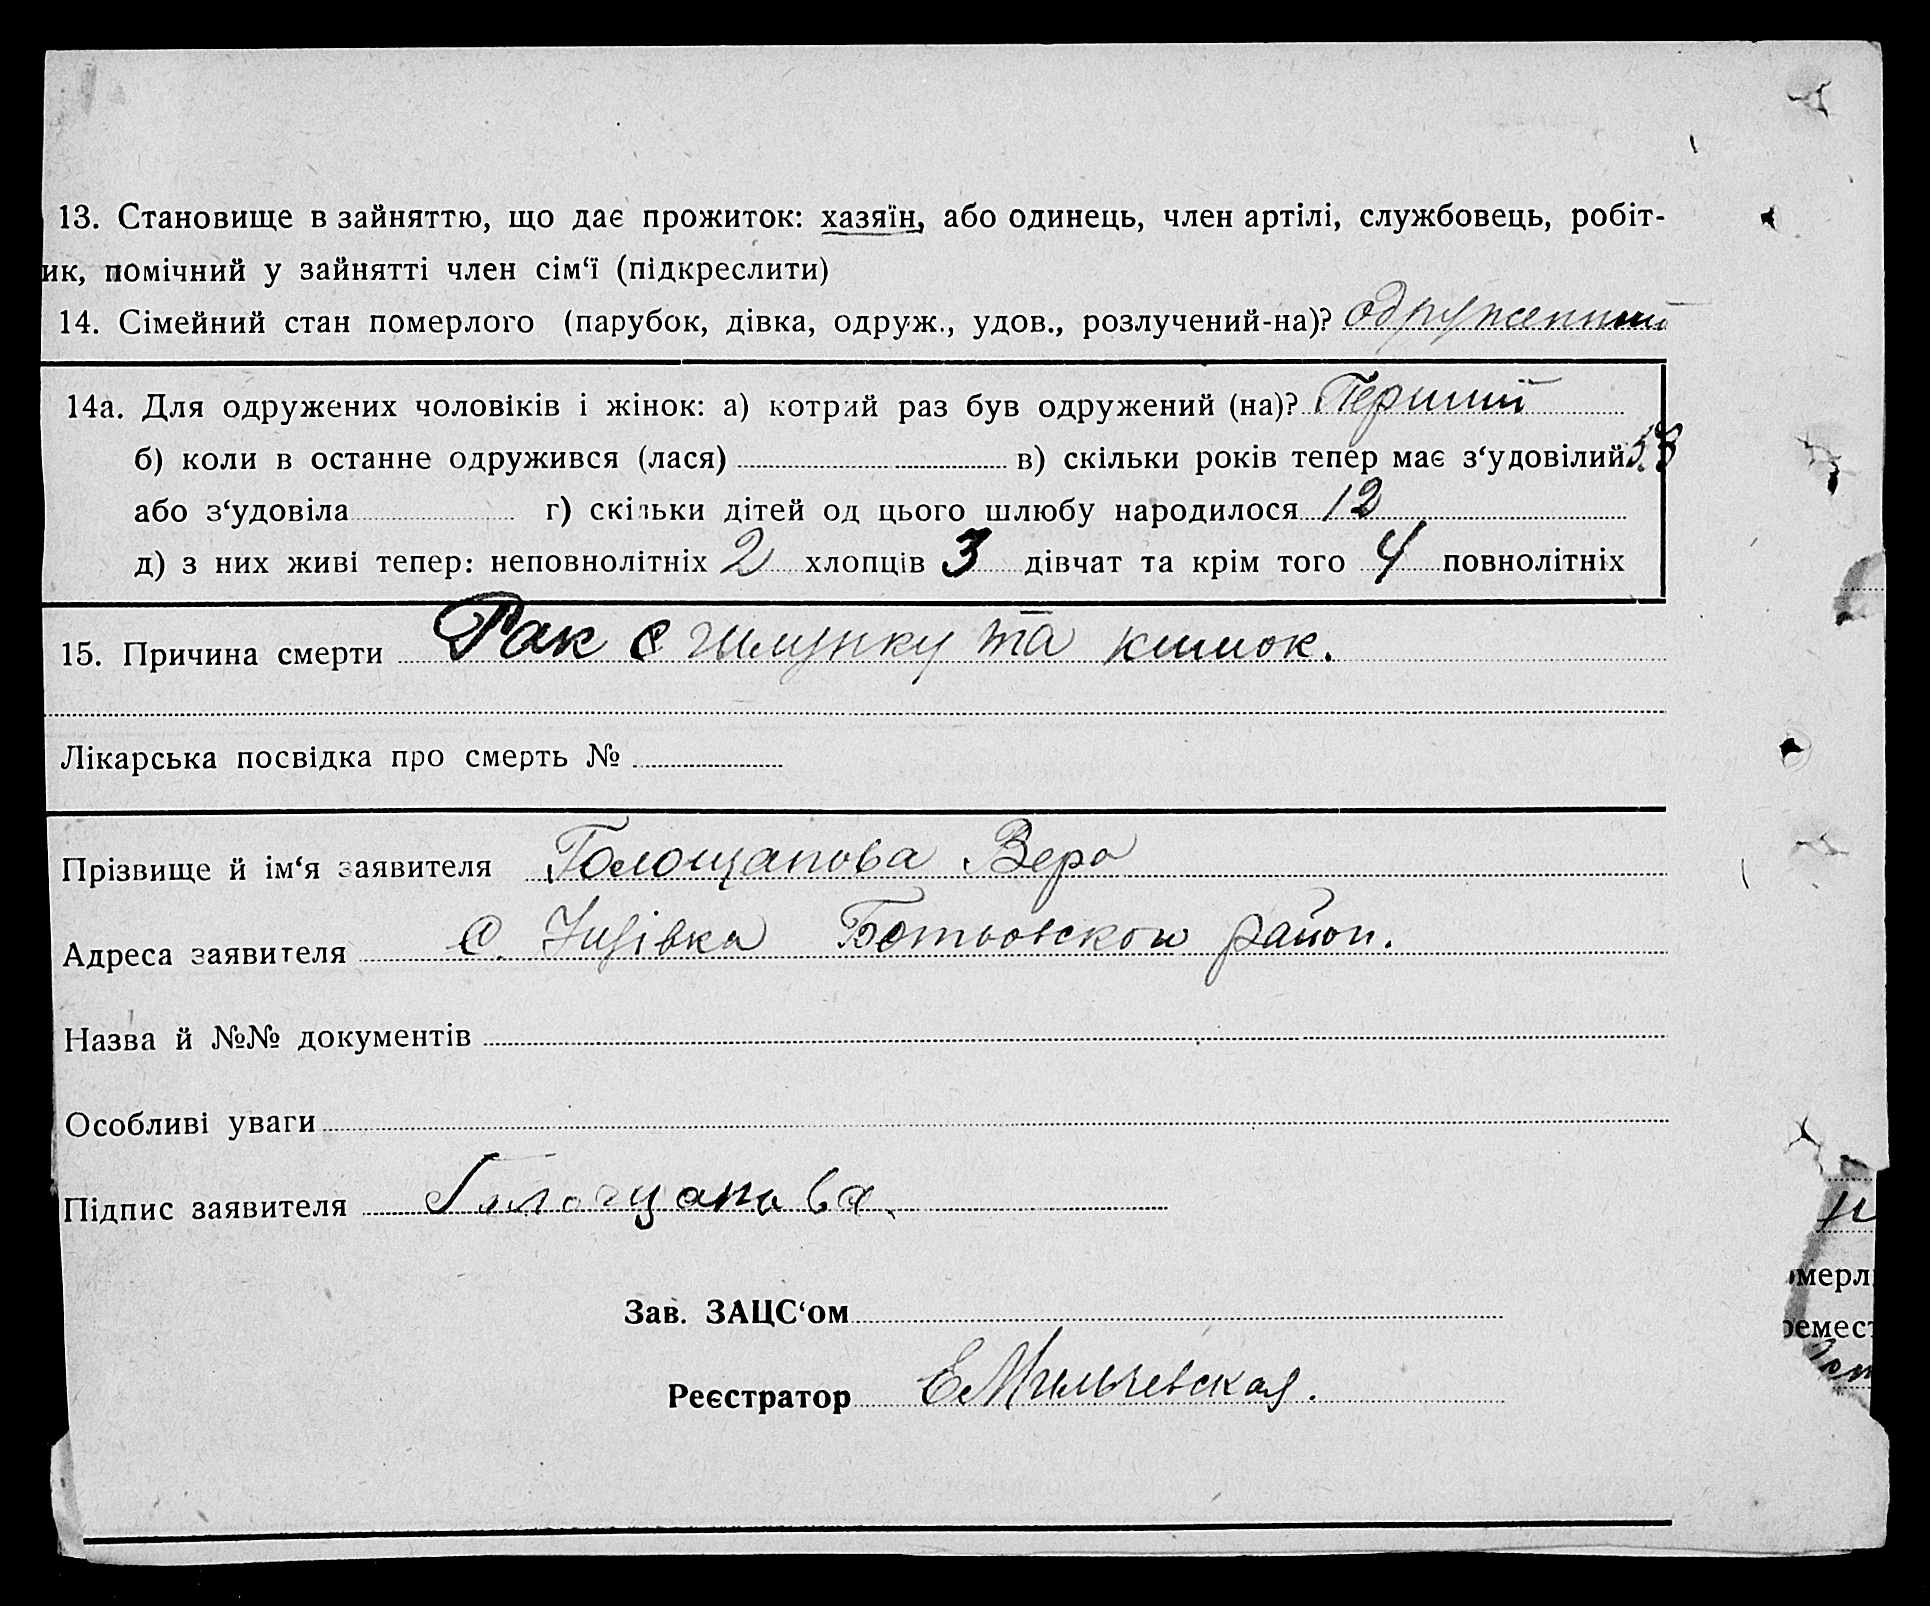 13. Становище в зайняттю, що дає прожиток: хазяїн, або одинець, член артілі, службовець, робіт-
ик, помічний у зайнятті член сім‘ї (підкреслити)
14. Сімейний стан померлого (парубок, дівка, одруж., удов., розлучений-на)? одружений
14а. Для одружених чоловіків і жінок: а) котрий раз був одружений (на)? Перший
б) коли в останнє одружився (лася) в) скільки років тепер має з‘удовілий 58
або з‘удовіла г) скільки дітей од цього шлюбу народилося 12
д) з них живі тепер: неповнолітніх 2 хлопців 3 дівчат та крім того 4 повнолітніх
15. Причина смерти Рак та кишок.
Лікарська посвідка про смерть №
Прізвище й ім‘я заявителя Голощапова Вера
Адреса заявителя с. район.
Назва й №№ документів
Особливі уваги
Підпис заявителя Голощапова
Зав. ЗАЦС‘ом
Реєстратор
мерл
емест